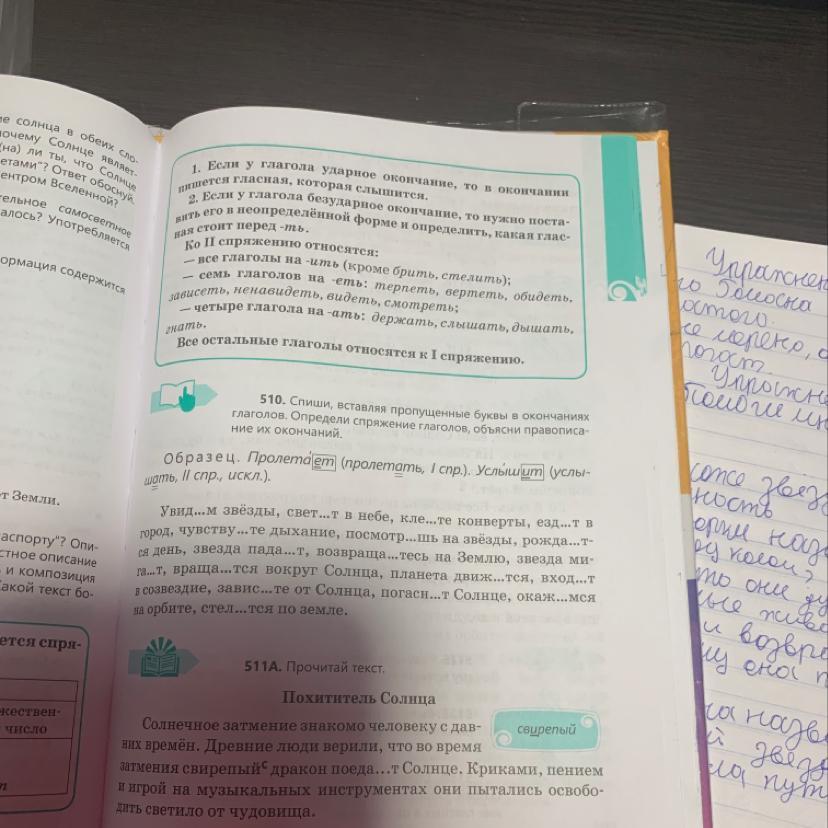 ие солнца в обеих сло-
почему Солнце являет-
(на) ли ты, что Солнце
етами"? Ответ обоснуй.
центром Вселенной?
тельное самосветное
алось? Употребляется
ормация содержится
т Земли.
аспорту"? Опи-
стное описание
ь и композиция
Какой текст бо-
ется спря-
жествен-
число
1. Если у глагола ударное окончание, то в окончании
пишется гласная, которая слышится.
2. Если у глагола безударное окончание, то нужно поста-
вить его в неопределённой форме и определить, какая глас-
ная стоит перед -ть.
Ко II спряжению относятся:
— все глаголы на -ить (кроме брить, стелить);
— семь глаголов на -еть: терпеть, вертеть, обидеть,
зависеть, ненавидеть, видеть, смотреть;
— четыре глагола на -ать: держать, слышать, дышать,
гнать.
Все остальные глаголы относятся к I спряжению.
510. Спиши, вставляя пропущенные буквы в окончаниях
глаголов. Определи спряжение глаголов, объясни правописа-
ние их окончаний.
Образец. Пролетает (пролетать, I спр.). Услышит (услы-
шать, II спр., искл.).
Увид...м звёзды, свет...т в небе, кле...те конверты, езд...т в
город, чувству...те дыхание, посмотр...шь на звёзды, рожда...т-
ся день, звезда пада...т, возвраща...тесь на Землю, звезда ми-
га...т, враща...тся вокруг Солнца, планета движ...тся, вход...т
в созвездие, завис...те от Солнца, погасн...т Солнце, окаж...мся
на орбите, стел...тся по земле.
511А. Прочитай текст.
Похититель Солнца
свирепый
Солнечное затмение знакомо человеку с дав-
них времён. Древние люди верили, что во время
затмения свирепыйс дракон поеда...т Солнце. Криками, пением
и игрой на музыкальных инструментах они пытались освобо-
дить светило от чудовища.
Упражнен
остого.
погаст.
Упражне
звезд
ность
что они
возвра
она п
назва
звезд